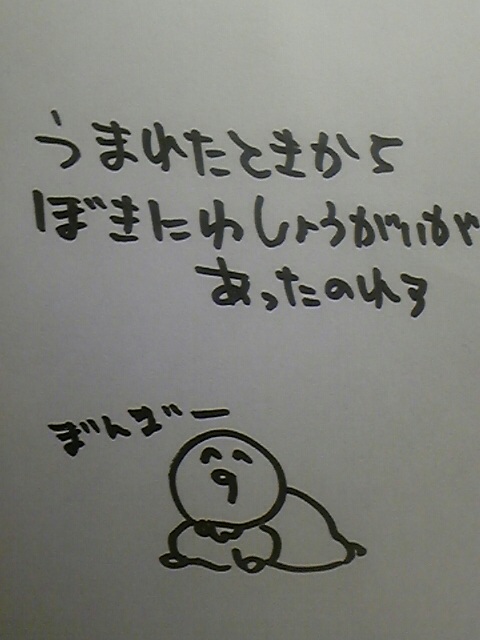 うまれたときから
ぼきにわしょうがいが
あったのれる
ぎんぎー